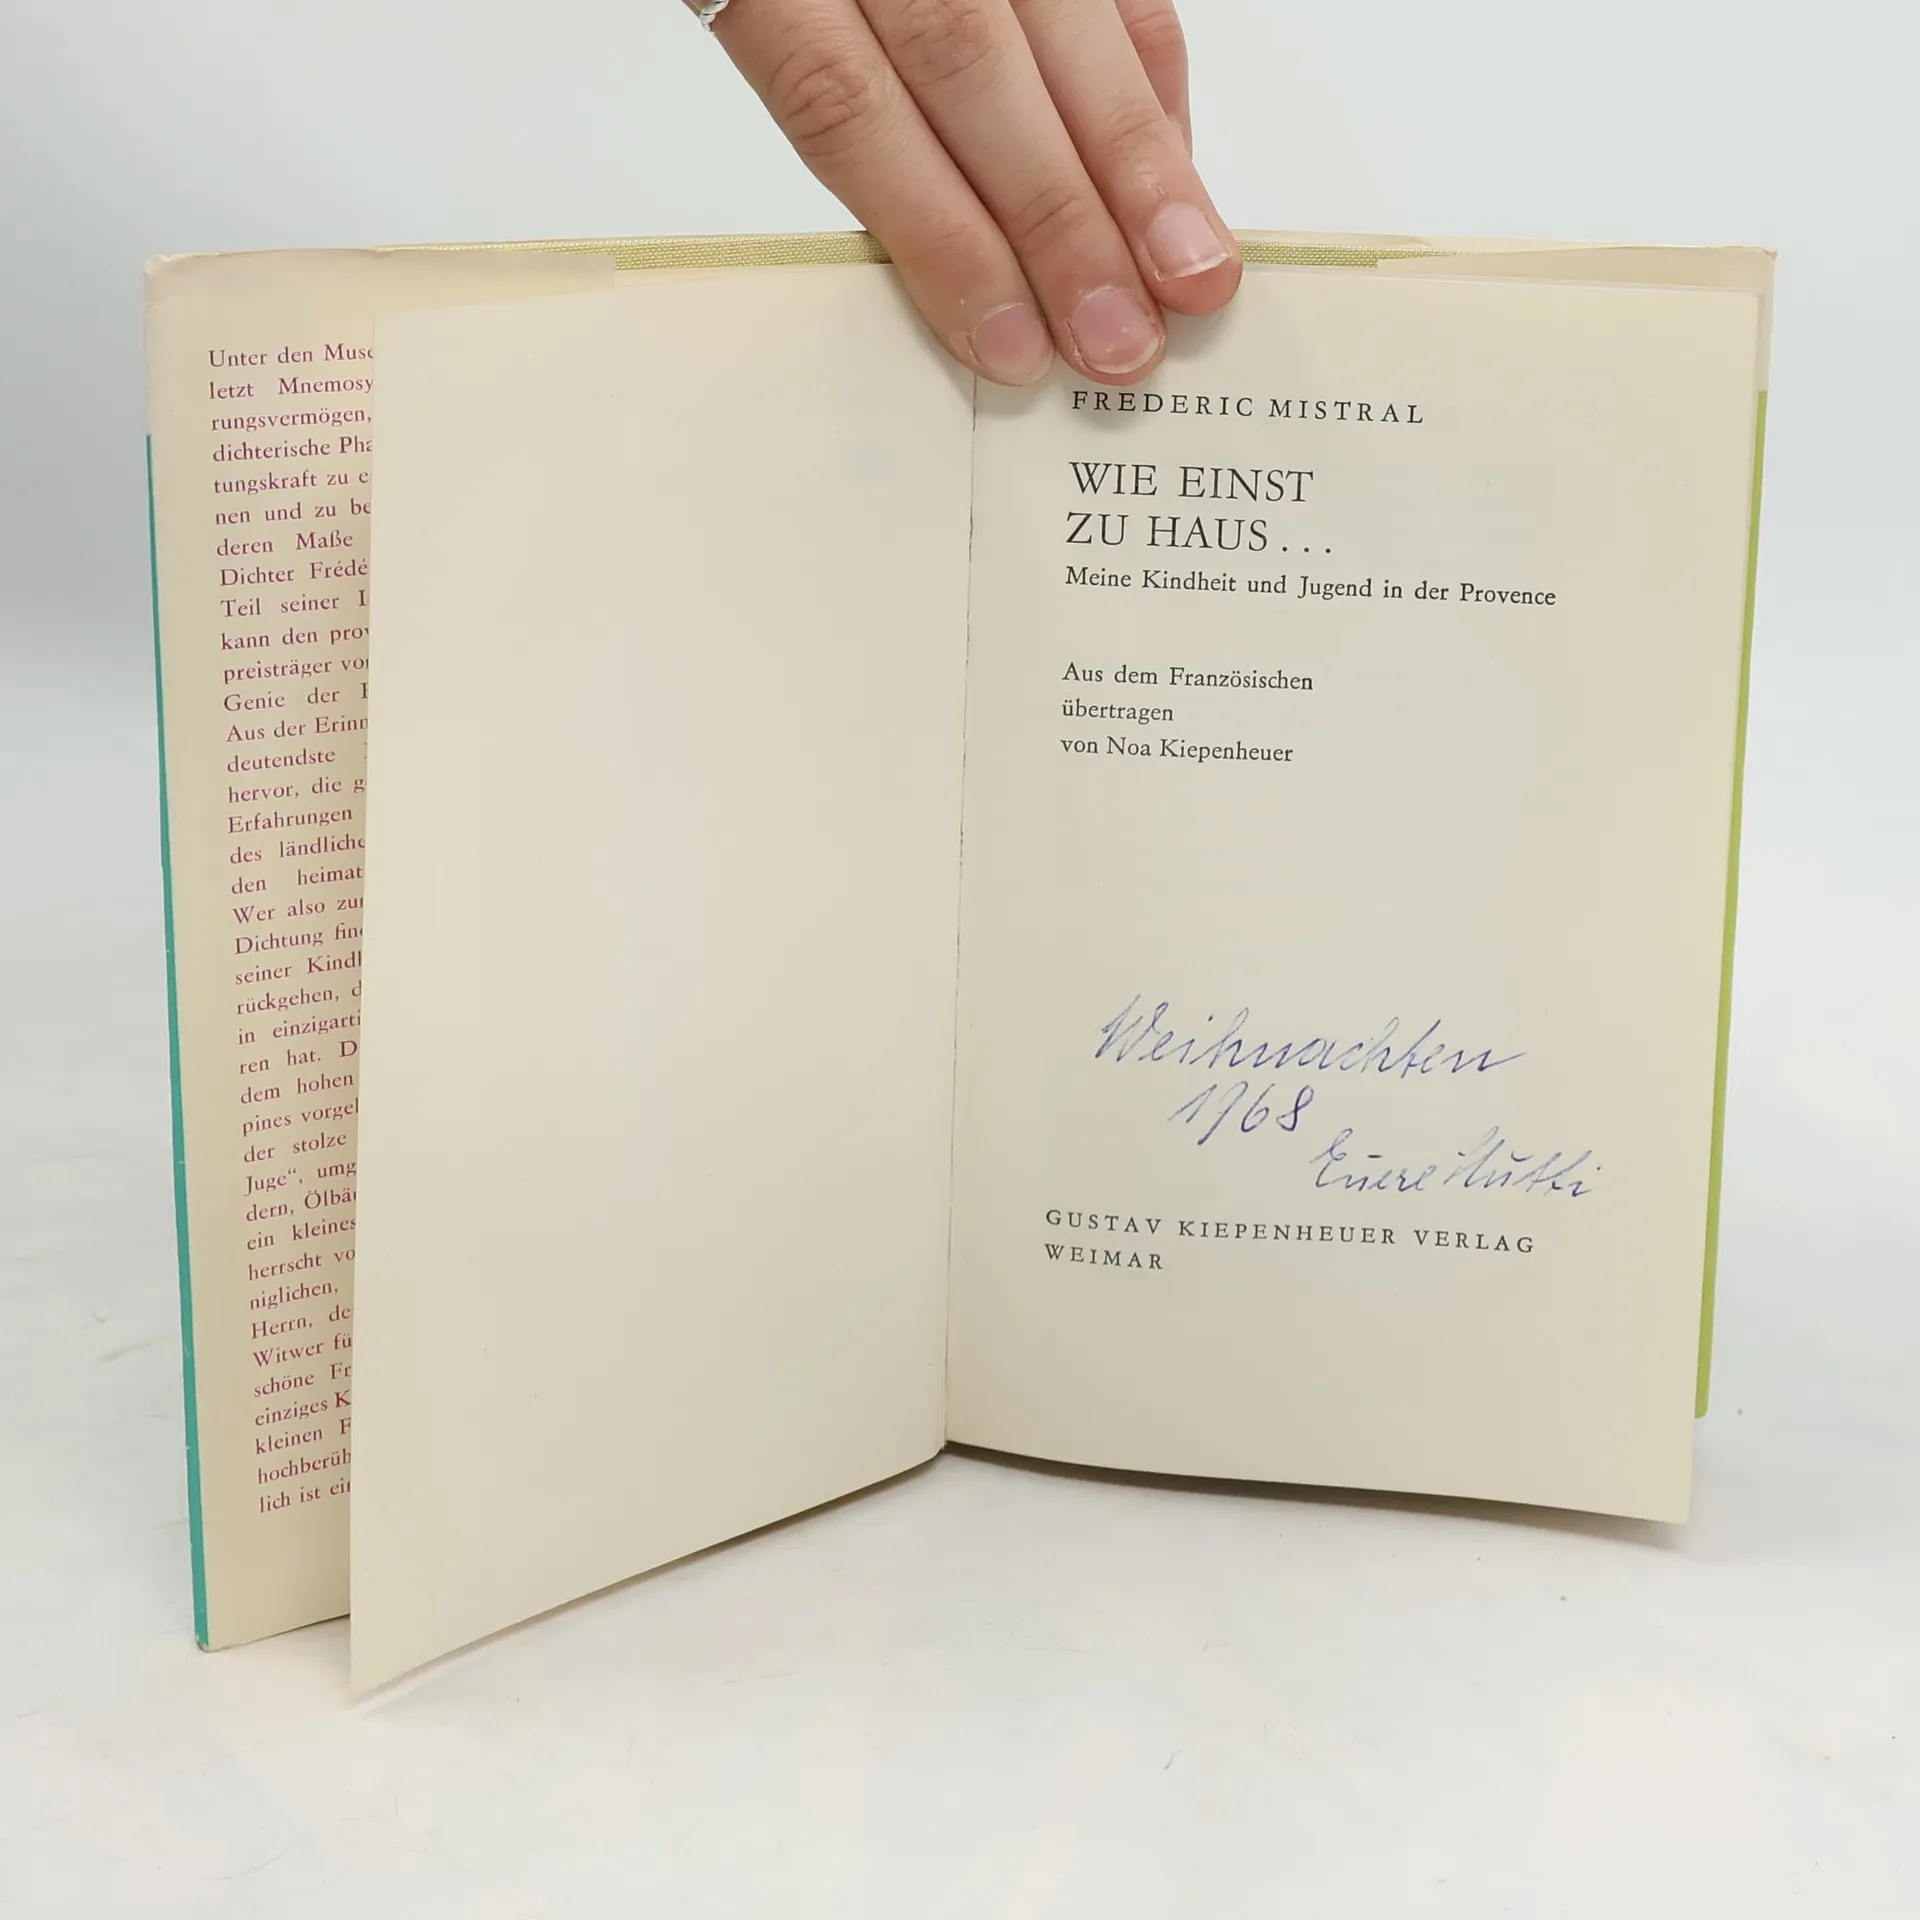 Unter den Muse
letzt Mnemosy
rungsvermögen,
dichterische Pha
tungskraft zu e
nen und zu be
deren Maße
Dichter Frédé
Teil seiner I
kann den prov
preisträger vo
Genie der
Aus der Erinn
deutendste
hervor, die g
Erfahrungen
des ländliche
den heimat
Wer also zu
Dichtung fin
seiner Kindh
rückgehen, d
in einzigarti
ren hat. D
dem hohen
pines vorgel
der stolze
Juge“, umg
dern, Ölbä
ein kleines
herrscht vo
niglichen,
Herrn, de
Witwer fü
schöne Fr
einziges K
kleinen F
hochberüh
lich ist ei
FREDERIC MISTRAL
WIE EINST
ZU HAUS...
Meine Kindheit und Jugend in der Provence
Aus dem Französischen
übertragen
von Noa Kiepenheuer
Weihnachten
1968
Euere Mutti
GUSTAV KIEPENHEUER VERLAG
WEIMAR